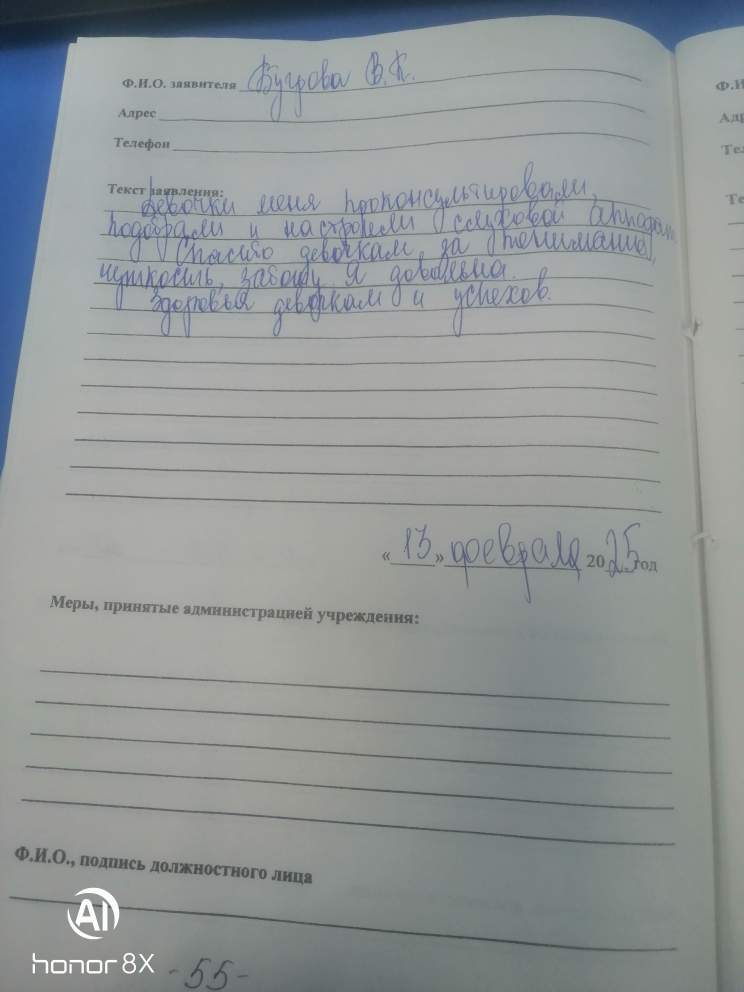 Ф.И.О. заявителя Бугрова В.К.
Адрес
Телефон
Текст заявления:
Девочки меня проконсультировали,
подобрали и настроили слуховой аппарат.
Спасибо девочкам за понимание,
чуткость, заботу. Я довольна.
Здоровья девочкам и успехов.
«13» февраля 2025 год
Меры, принятые администрацией учреждения:
Ф.И.О., подпись должностного лица
AI
honor 8X
-55-
Ф.И
Адр
Тел
Те